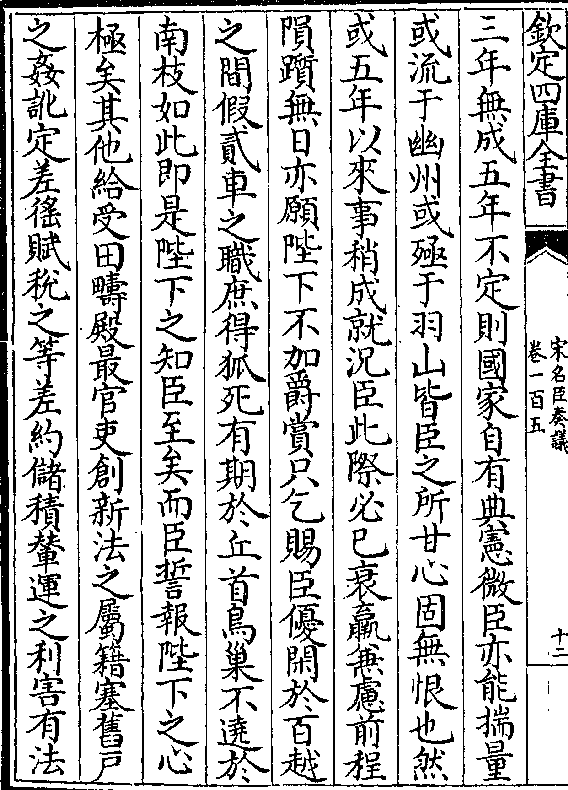 欽定四庫全書
宋名臣奏議
卷一百五
十二
三年無成五年不定則國家自有典憲微臣亦能揣量
或流于幽州或殛于羽山皆臣之所甘心固無恨也然
或五年以來事稍成就況臣此際必已衰羸兼慮前程
隕躓無日亦願陛下不加爵賞只乞賜臣優閑於百越
之間假貳車之職庶得狐死有期於丘首鳥巢不遶於
南枝如此即是陛下之知臣至矣而臣誓報陛下之心
極矣其他給受田疇殿最官吏創新法之屬籍塞舊戶
之姦訛定差徭賦稅之等差約儲積輦運之利害有法